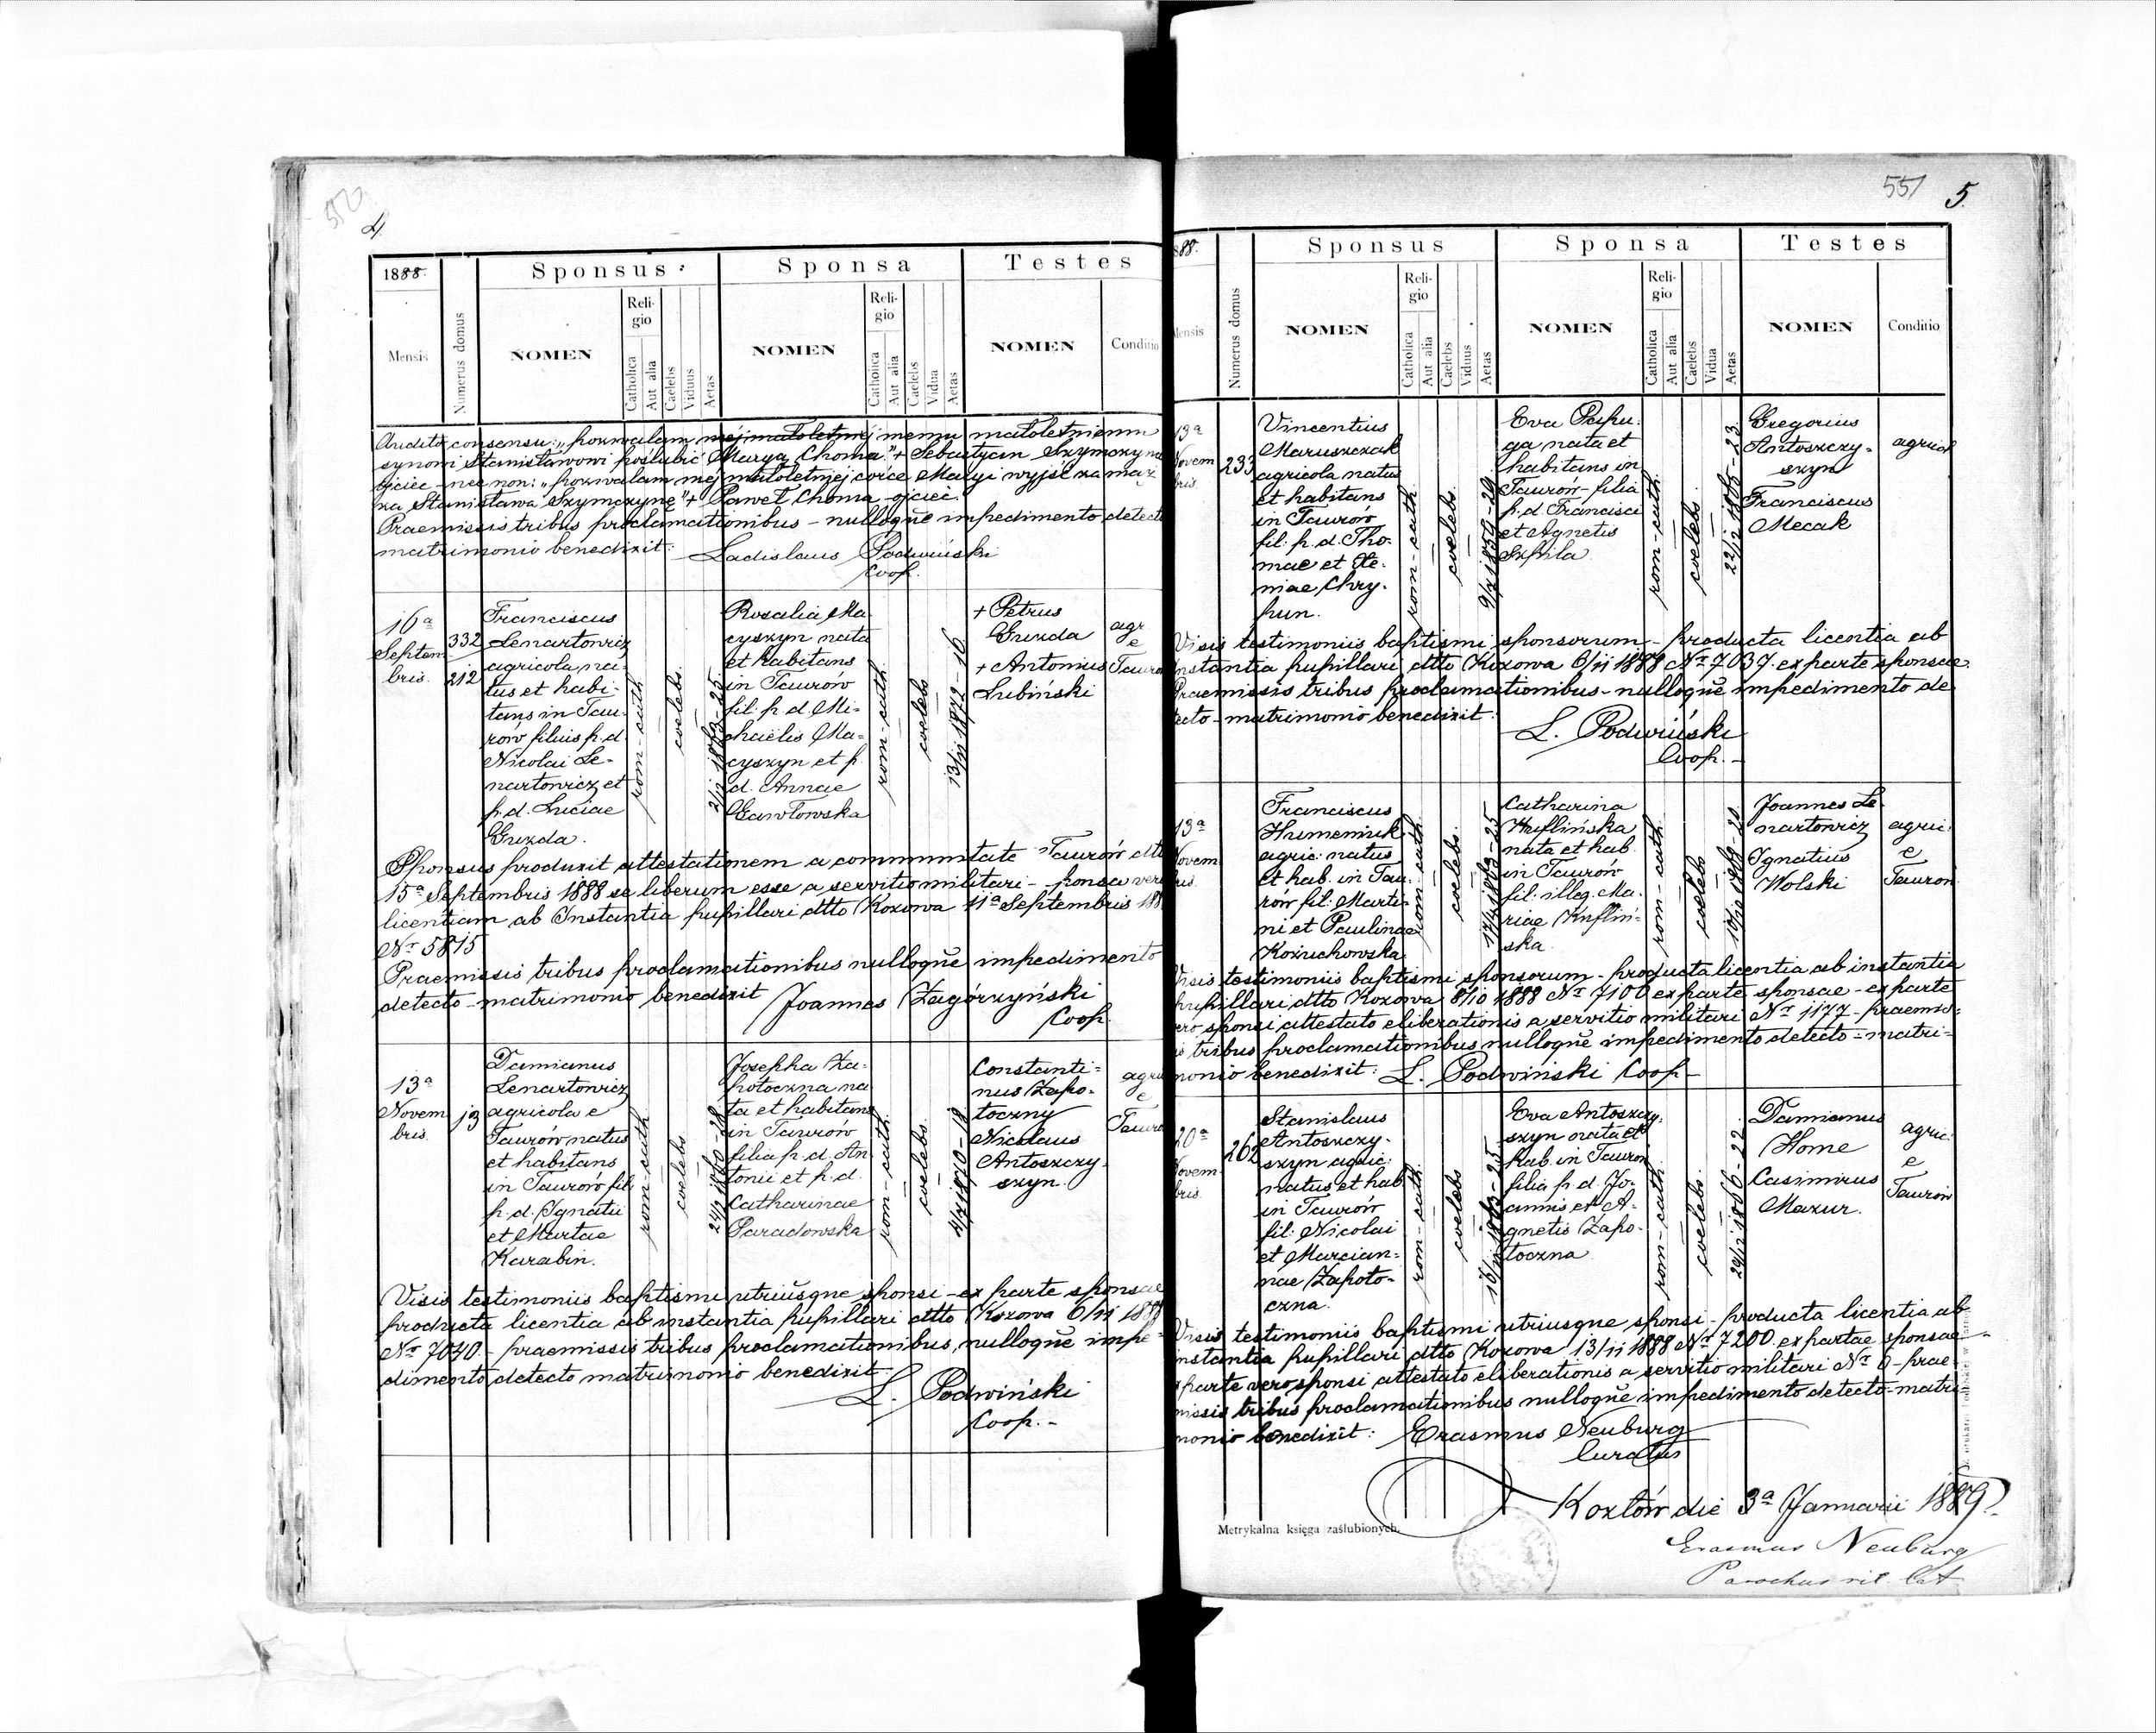 4.
1888.
Sponsus
Sponsa
Testes
Mensis
Numerus domus
NOMEN
Religio
Catholica
Aut alia
Caelebs
Viduus
Aetas
NOMEN
Religio
Catholica
Aut alia
Caelebs
Vidua
Aetas
NOMEN
Conditio
Audito consensu: „pozwalam mej małoletniej memu małoletniemu
synowi Stanisławowi poślubić Maryą Choma." + Sebastyan Szymczyna
ojciec - nec non: „pozwalam mej małoletniej córce Maryi wyjść za mąż
za Stanisława Szymczynę" + Paweł Choma ojciec.
Praemissis tribus proclamationibus - nulloque impedimento detecto
matrimonio benedixit: Ladislaus Podwiński
Coop.
16a
Septem
bris.
332
212
Franciscus
Lenartowicz
agricola, na-
tus et habi-
tans in Tau-
row filius p.d.
Nicolai Le-
nartowicz et
p.d. Luciae
Gwzda.
rom-cath.
coelebs.
Rosalia Ma
cyszyn nata
et habitans
in Taurów
fil. p. d. Mi-
chaelis Ma-
cyszyn et p.
d. Annae
Gawłowska
rom-cath.
coelebs
13/11 1872 - 16
+ Petrus
Gwzda
+ Antonius
Lubiński
agr
e
Tauro
Sponsus produxit attestationem a communitate Taurów dtto
15a Septembris 1888 se liberum esse a servitio militari - sponsa vero
licentiam ab Instantia pupillari dtto Kozowa 11a Septembris 188
Nr 5815
Praemissis tribus proclamationibus nulloque impedimento
detecto - matrimonio benedixit Joannes Zagórzyński
Coop.
13a
Novem
bris.
Damianus
Lenartowicz
agricola e
Taurów natus
et habitans
in Taurów fil.
p. d. Ignatii
et Martae
Karabin.
rom-cath
coelebs
Josepha Za-
potoczna na
ta et habitans
in Taurów
filia p. d. An
tonii et p. d.
Catharinae
Paradowska
rom-cath.
coelebs.
Constanti-
nus Zapo-
toczny
Nicolaus
Antoszczy-
szyn.
agri
e
Tauro
Visis testimoniis baptismi utriusque sponsi - ex parte sponsae
producta licentia ab instantia pupillari dtto Kozowa 6/11 1888
Nr 7040 - praemissis tribus proclamationibus, nulloque impe-
dimento detecto matrimonio benedixit:
L. Podwiński
Coop. -
551 5.
88.
Sponsus
Sponsa
Testes
Mensis
Numerus domus
NOMEN
Religio
Catholica
Aut alia
Caelebs
Viduus
Aetas
NOMEN
Religio
Catholica
Aut alia
Caelebs
Vidua
Aetas
NOMEN
Conditio
13a
Novem
bris.
233
Vincentius
Maruszczak
agricola natus
et habitans
in Taurów
fil. p. d. Tho-
mae et Xe-
niae Chry-
pun.
rom-cath.
coelebs.
Eva Papu-
ga nata et
habitans in
Taurów - filia
p. d. Francisci
et Agnetis
Szpila
rom-cath.
coelebs.
22/12 1865 - 23
Gregorius
Antoszczy-
szyn
Franciscus
Mecak
agricol
Visis testimoniis baptismi sponsorum - producta licentia ab
instantia pupillari dtto Kozowa 6/11 1888 Nr 7037. ex parte sponsae.
Praemissis tribus proclamationibus - nulloque impedimento de
tecto - matrimonio benedixit:
L. Podwiński
Coop. -
13a
Novem
bris.
Franciscus
Humeniuk
agric. natus
et hab. in Tau-
rów fil. Marti-
ni et Paulinae
Kożuchowska
rom-cath
coelebs.
Catharina
Kuflińska
nata et hab.
in Taurów
fil. illeg. Ma-
riae Kuflin-
ska
rom-cath
coelebs
Joannes Le-
nartowicz
Ignatius
Wolski
agric.
e
Taurow
Visis testimoniis baptismi sponsorum - producta licentia ab instantia
pupillari dtto Kozowa 8/10 1888 Nr 7100 ex parte sponsae - ex parte
vero sponsi attestato eliberationis a servitio militari Nr 1177 - praemis-
is tribus proclamationibus nulloque impedimento detecto - matri-
monio benedixit: L. Podwiński Coop -
20a
Novem
bris.
262
Stanislaus
Antoszczy-
szyn agric:
natus et hab
in Taurów
fil: Nicolai
et Marcian-
nae Zapoto-
czna.
rom-cath.
coelebs
Eva Antoszczy-
szyn nata et
hab. in Taurow
filia p. d. Jo-
annis et A-
gnetis Zapo-
toczna
rom-cath
coelebs.
Damianus
Home
Casimirus
Mazur.
agric.
e
Taurów
Visis testimoniis baptismi utriusque sponsi - producta licentia ab
instantia pupillari dtto Kozowa 13/11 1888 Nr 7200. ex partae sponsae -
x parte vero sponsi attestato eliberationis a servitio militari Nr 6 - prae
missis tribus proclamationibus nulloque impedimento detecto - matri-
monio benedixit: Erasmus Neuburg
Curatus
Kozłów die 3a Januarii 1889.
Metrykalna księga zaślubionych.
Erasmus Neuburg
Parochus rit. lat.